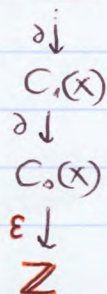 ⋮
∂↓
C₁(X)
∂↓
C₀(X)
ε↓
ℤ